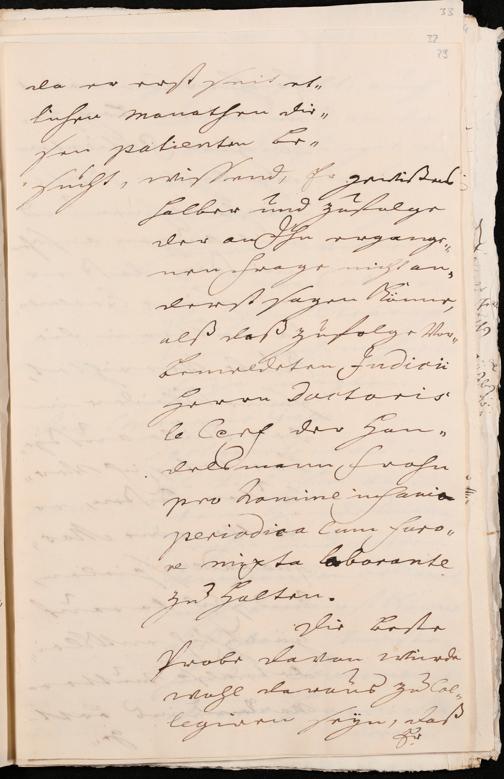 33
32
29
da er erst seit et„
lichen Monathen die„
sen patienten be„
sucht, wissend, Er gewißens
halber und zufolge
der an Ihn ergange„
nen Frage nicht an„
derst sagen könne,
alß daß zufolge Vor„
bemeldeten Judicii
Herrn Doctoris
le Cerf der Han„
delsmann Frohn
pro homine insania
periodica cum furo„
re mixta laborante
zu halten.
Die beste
Probe davon würde
wohl daraus zu Col„
legiren seyn, daß
Er